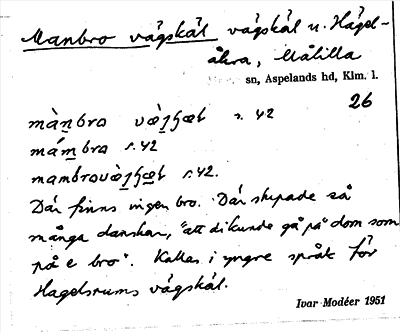 Manbro vägskäl vägskäl n. Hagel-
åkra, Målilla
sn, Aspelands hd, Klm. l.
26
màn̲bro s. 42
mám̲bro s. 42
s. 42.
Där finns ingen bro. Där stupade så
många danskar, "att di kunde gå på dom som
på e bro". Kallas i yngre språk för
Hagelsrums vägskäl.
Ivar Modéer 1951